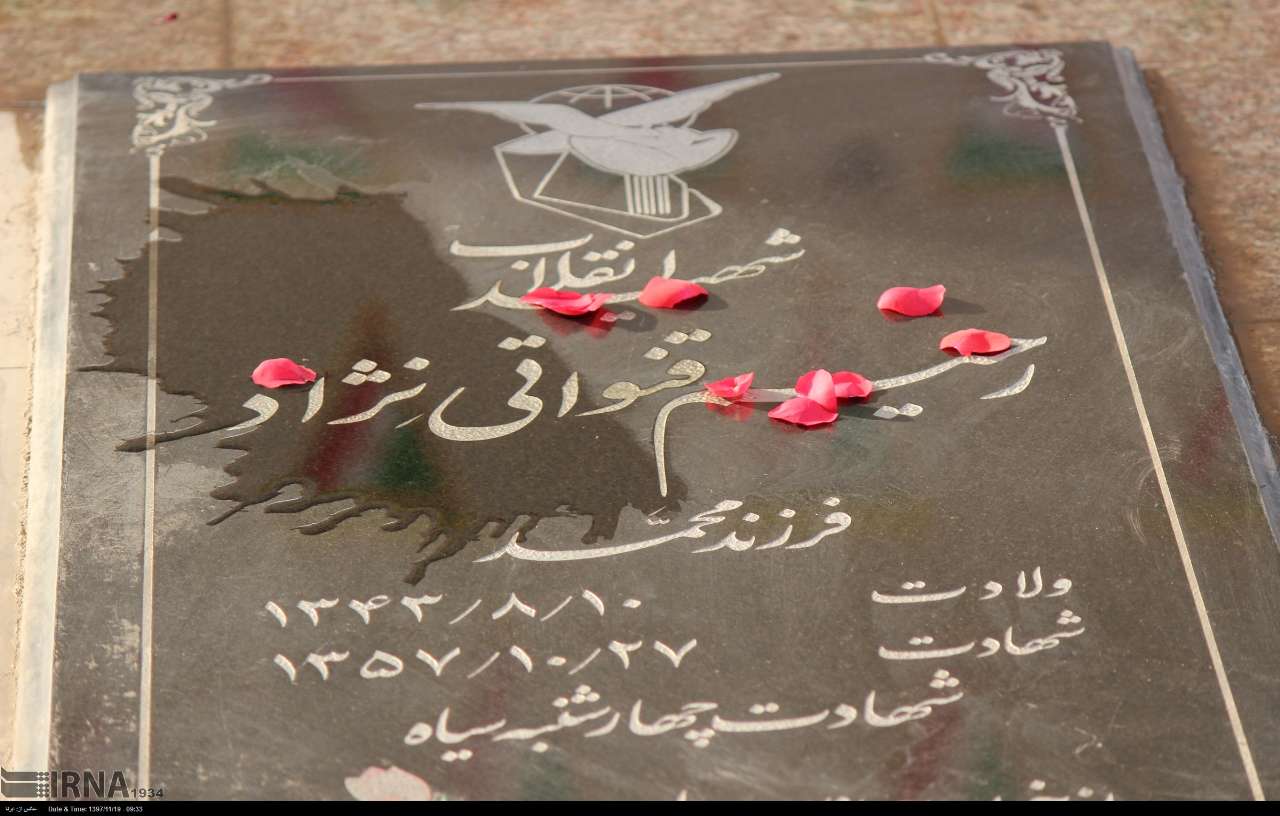 شهید انقلاب
رحیم قنواتی نژاد
فرزند محمّد
ولادت ۱۳۴۳/۸/۱۰
شهادت ۱۳۵۷/۱۰/۲۷
شهادت چهارشنبه سیاه
IRNA 1934
عکس از: ایرنا Date & Time: 1397/11/19 - 09:33